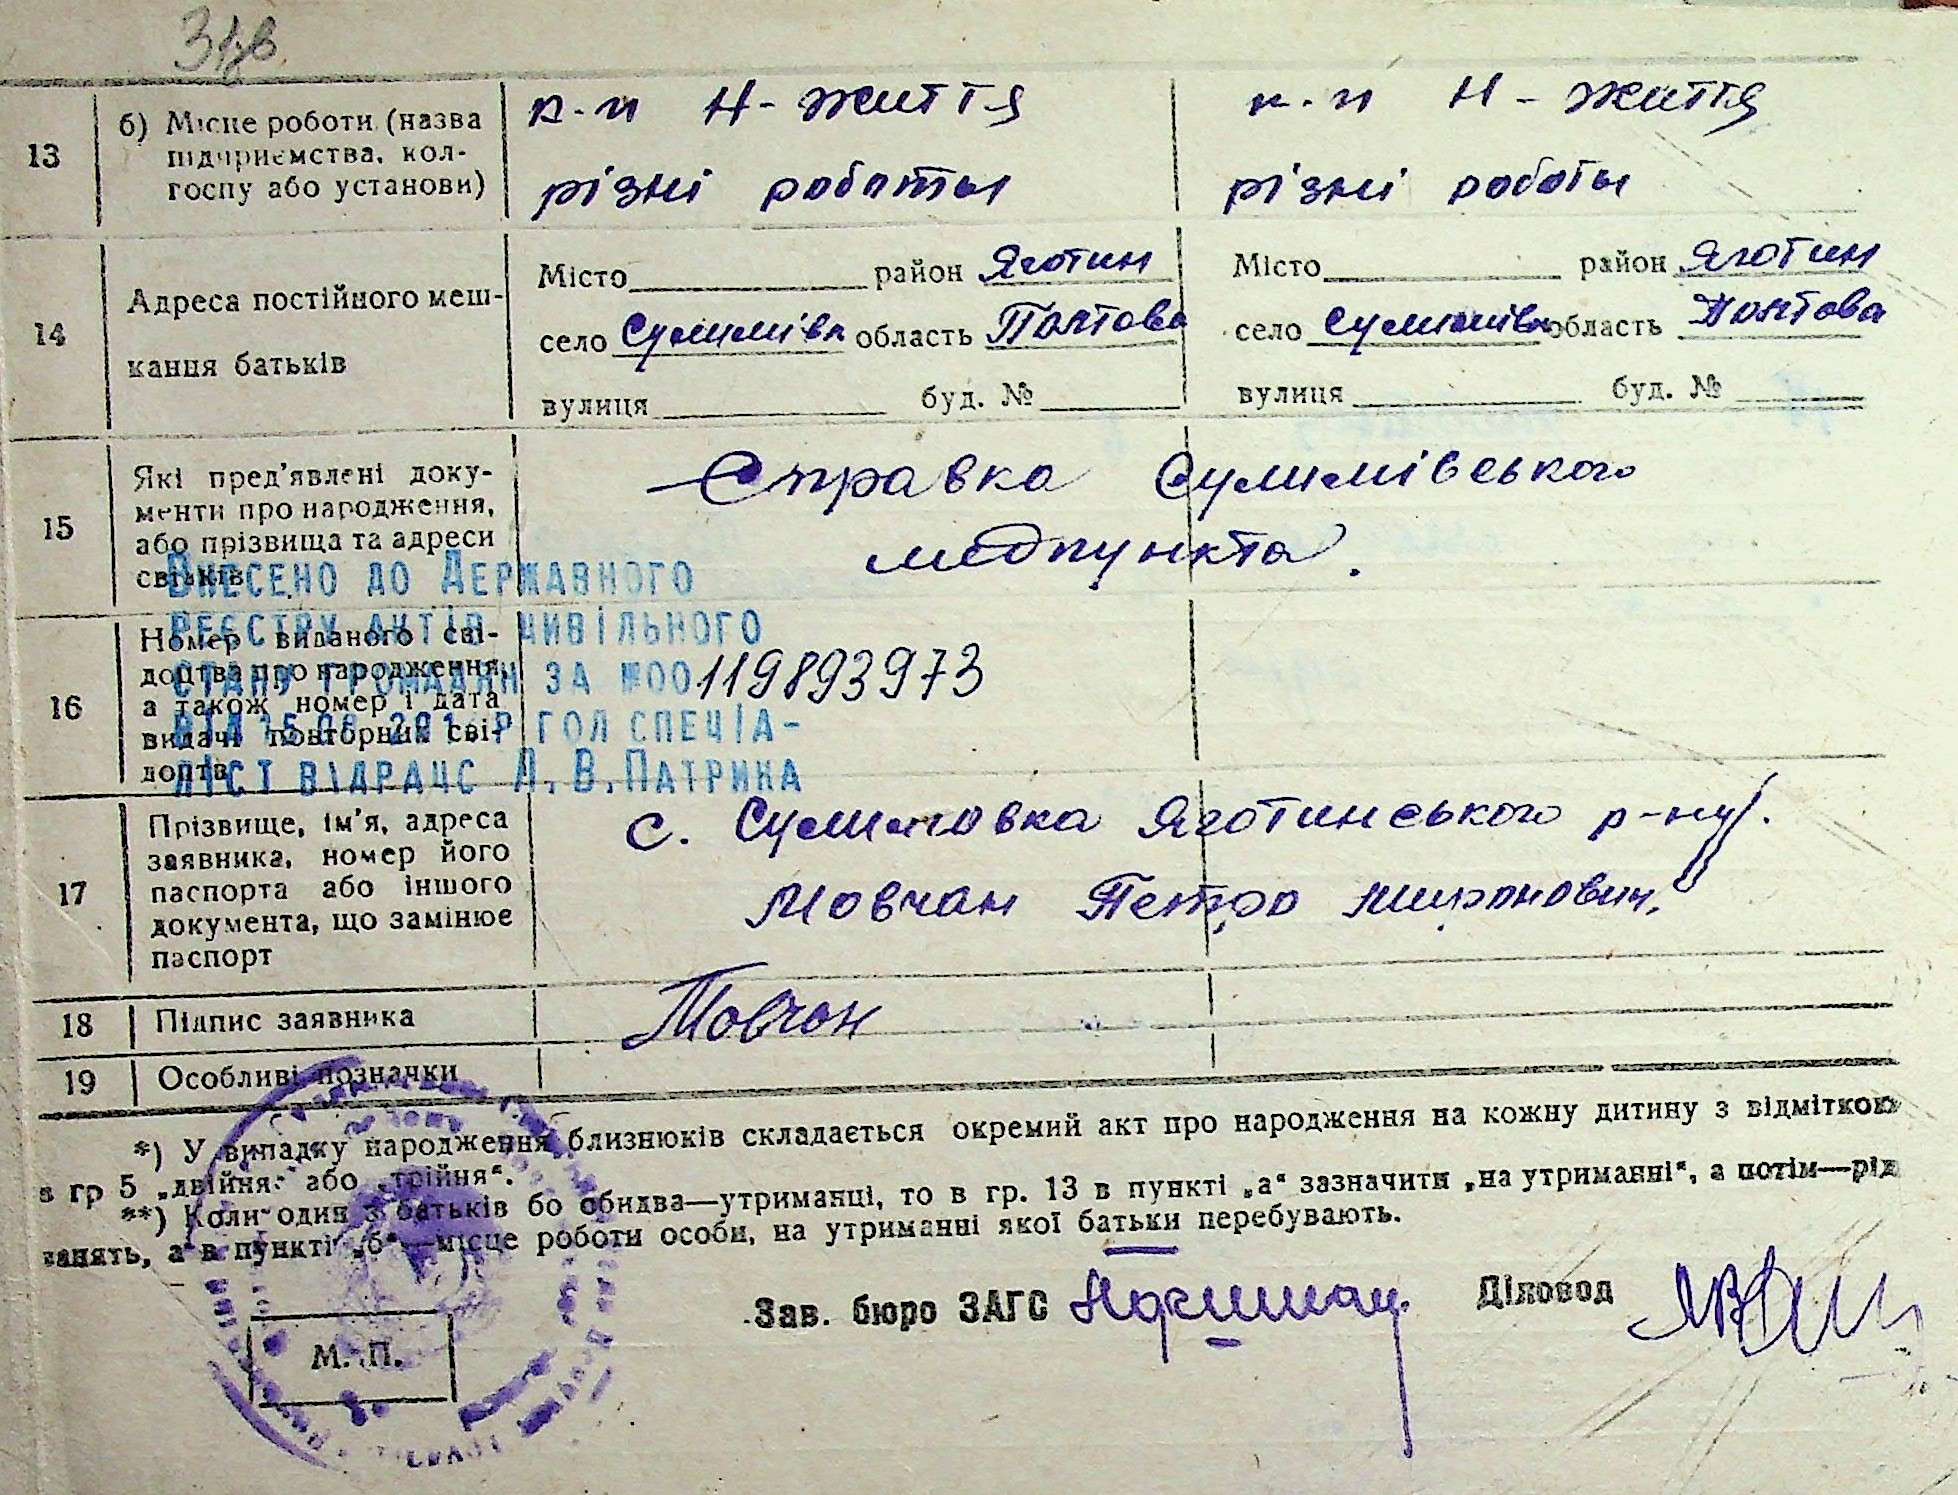 31зв.
13
б) Місце роботи (назва
підприємства, кол-
госпу або установи)
к-п Н-життя
різні роботы
к-п Н-життя
різні роботы
14
Адреса постійного меш-
кання батьків
Місто район Яготин
село Сулимівк область Полтова
вулиця буд. №
Місто район Яготин
село Сулимівк область Полтова
вулиця буд. №
15
Які пред'явлені доку-
менти про народження,
або прізвища та адреси
свідків
Справка Сулимівського
медпункта.
Внесено до Державного
реєстру актів цивільного
стану громадян за №00119893973
р гол спеціа-
ліст відрацс Л.В.Патрика
16
Номер виданого сві-
доцтва про народження,
а також номер і дата
видачі повторних сві-
доцтв
17
Прізвище, ім'я, адреса
заявника, номер його
паспорта або іншого
документа, що замінює
паспорт
с. Сулимовка Яготинського р-ну.
Мовчан Петро Миронович
18
Підпис заявника
Мовчан
19
Особливі позначки
*) У випадку народження близнюків складається окремий акт про народження на кожну дитину з відміткою
в гр 5 „двійня“ або „трійня“.
**) Коли один з батьків бо обидва—утриманці, то в гр. 13 в пункті „а“ зазначити „на утриманні“, а потім—рід
занять, а в пункті „б“—місце роботи особи, на утриманні якої батьки перебувають.
Зав. бюро ЗАГС
Діловод
М. П.